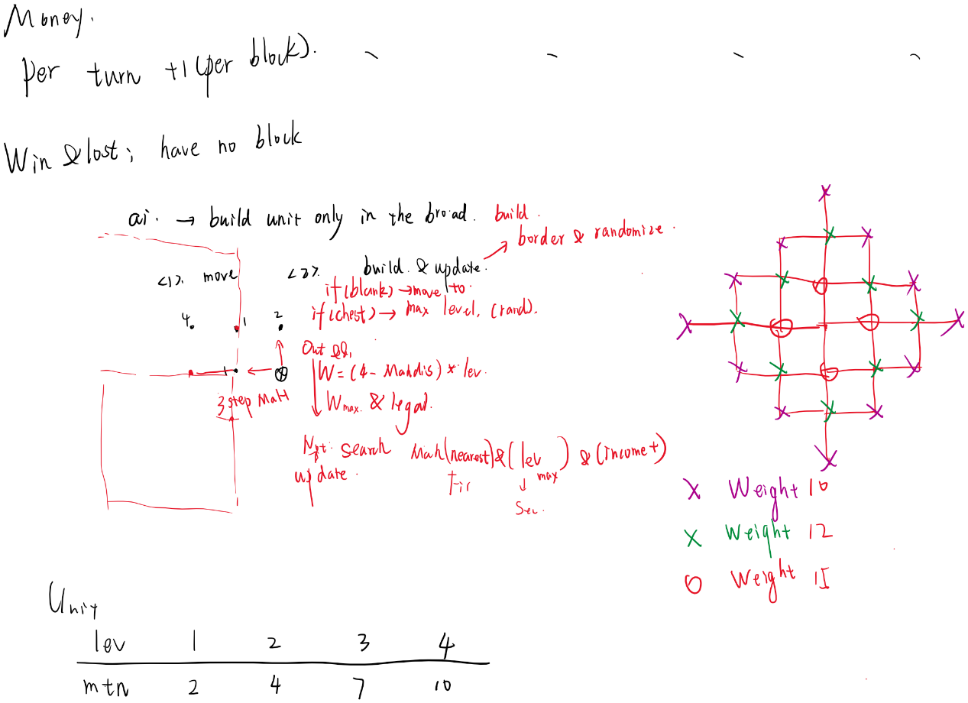 Money.
Per turn +1 (per block).
Win & lost; have no block
ai. → build unit only in the broad.
build.
border & randomize.
<1>. move
<2>. build & update.
if(blank) → move to
if(chest) → max level, (rand).
4. 1 2
Out
W = (4 - Mahdis) * lev.
3 step MaH
Wmax. & legal.
search Mah(nearest) & (lev max) & (income+)
update.
Sec.
X Weight 10
X Weight 12
O Weight 15
Unit
lev 1 2 3 4
mtn 2 4 7 10